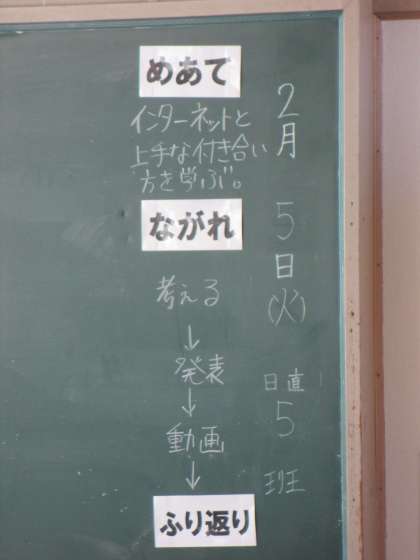 2月
5日
(火)
日直
5
班
めあて
インターネットと
上手な付き合い
方を学ぶ。
ながれ
考える
↓
発表
↓
動画
↓
ふり返り